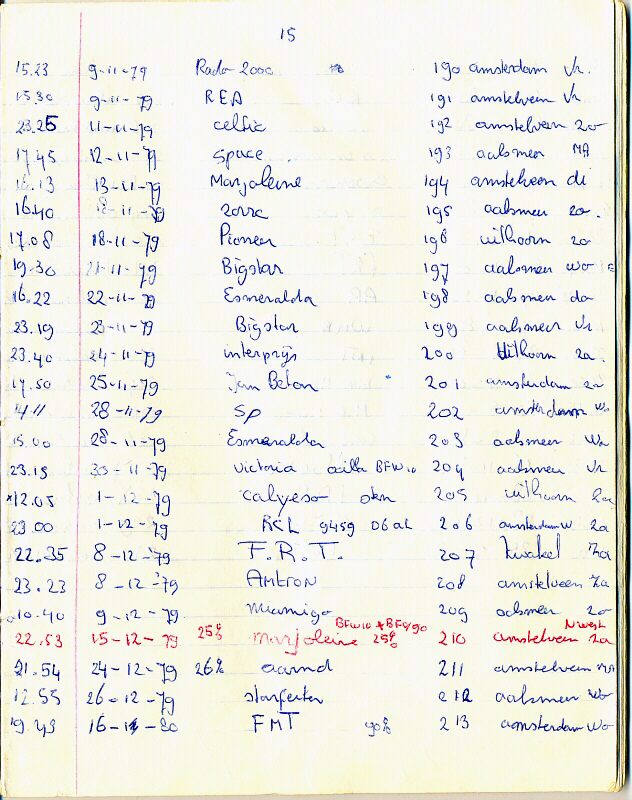 15
15.23 9-11-79 Radio 2000 190 amsterdam Vr.
15.30 9-11-79 REA 191 amstelveen Vr
23.25 11-11-79 celtic 192 amstelveen zo
17.45 12-11-79 space 193 aalsmeer MA
16.13 13-11-79 Marjoleine 194 amstelveen di
16.40 18-11-79 zorro 195 aalsmeer zo.
17.08 18-11-79 Pioneer 196 uithoorn zo
19.30 21-11-79 Bigstar 197 aalsmeer wo
16.22 22-11-79 Esmeralda 198 aalsmeer do
23.19 23-11-79 Bigstar 199 aalsmeer Vr
23.40 24-11-79 interprijs 200 Uithoorn za.
17.50 25-11-79 Jan Beton 201 amsterdam zo
14 11 28-11-79 SP 202 amsterdam Wo
15.00 28-11-79 Esmeralda 203 aalsmeer Wo
23.15 30-11-79 victoria BFW10 204 aalsmeer Vr
12.05 1-12-79 calypso 205 uithoorn za
23.00 1-12-79 RCL 9459 06 al 206 amsterdam W za
22.35 8-12-79 F.R.T. 207 kwakel za
23.23 8-12-79 Amtron 208 amstelveen za
10.40 9-12-79 miamigo 209 aalsmeer zo
22.53 15-12-79 25% marjoleine BFW10 + BF490 25% 210 amstelveen N west za
21.54 24-12-79 26% aarnd 211 amstelveen MA
12.55 26-12-79 starfecter 212 aalsmeer wo
19.49 16-1-80 FMT 90% 213 amsterdam wo